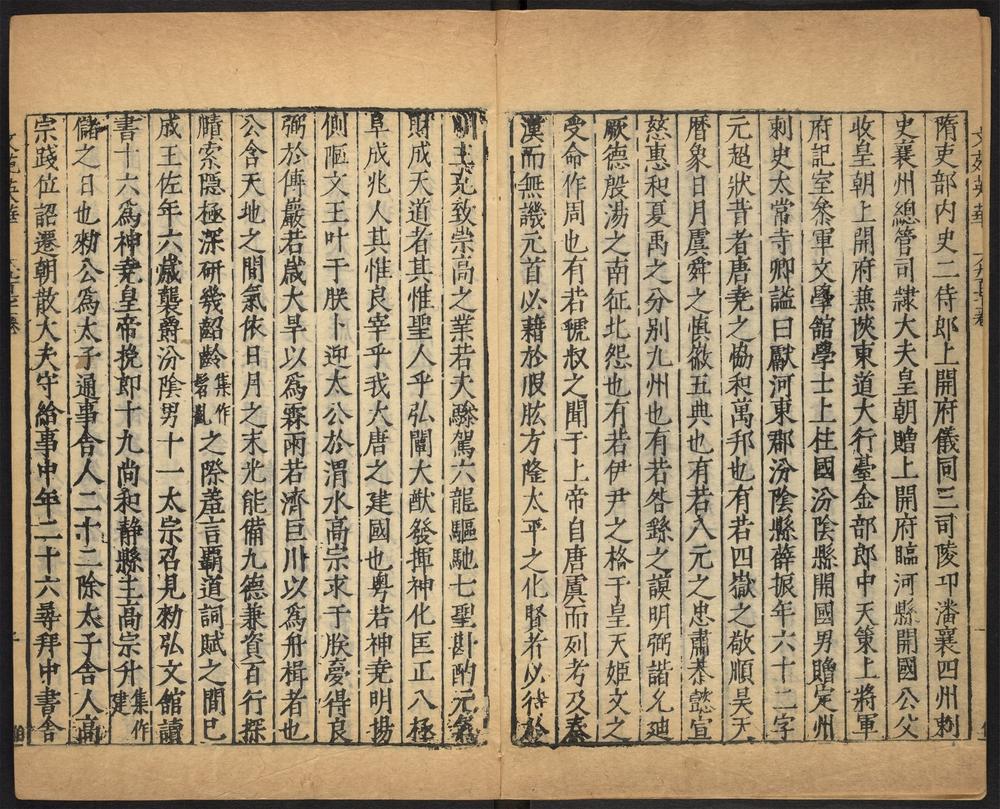 隋吏部內史二侍郎上開府儀同三司陵卭潘襄四州刺
史襄州總管司隸大夫皇朝贈上開府臨河縣開國公父
收皇朝上開府兼陝東道大行臺金部郎中天策上將軍
府記室叅軍文學館學士上柱國汾陰縣開國男贈定州
刺史太常寺卿謚曰獻河東郡汾陰縣薛振年六十二字
元超狀昔者唐堯之協和萬邦也有若四嶽之敬順昊天
曆象日月虞舜之慎徽五典也有若八元之忠肅恭懿宣
慈惠和夏禹之分別九州也有若咎繇之謨明弼諧允廸
厥德殷湯之南征北怨也有若伊尹之格于皇天姬文之
受命作周也有若虢叔之聞于上帝自唐虞而列考及秦
漢而無譏元首必藉於股肱方隆太平之化賢者必待於
明主克致崇高之業若夫驂駕六龍驅馳七聖斟酌元氣
財成天道者其惟聖人乎弘闡大猷發揮神化匡正八極
阜成兆人其惟良宰乎我大唐之建國也粵若神堯明揚
側陋文王叶于朕卜迎太公於渭水高宗求于朕夢得良
弼於傅巖若歲大旱以爲霖雨若濟巨川以爲舟楫者也
公含天地之間氣依日月之末光能備九德兼資百行探
賾索隱極深研幾齠齡集作髫齓之際羞言覇道詞賦之間已
成王佐年六歲襲爵汾陰男十一太宗召見勑弘文館讀
書十六爲神堯皇帝挽郎十九尚和靜縣主高宗升集作建
儲之日也勑公爲太子通事舍人二十二除太子舍人高
宗踐位詔遷朝散大夫守給事中年二十六尋拜中書舍